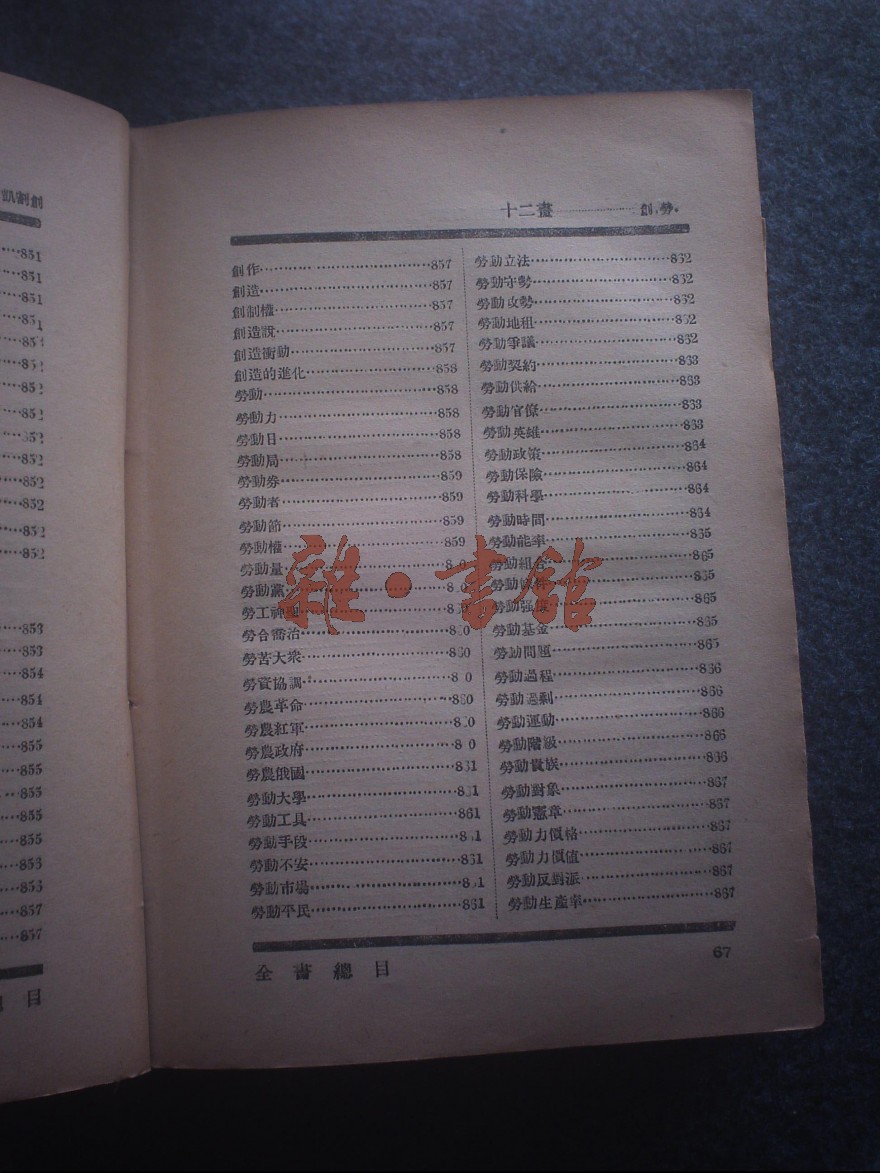 創割飢
851
851
851
851
852
852
852
852
852
852
852
853
853
854
854
854
855
855
855
855
856
857
857
目
十二畫……創,勞.
創作……857
創造……857
創制權……857
創造說……857
創造衝動……857
創造的進化……858
勞動……858
勞動力……858
勞動日……858
勞動局……858
勞動券……859
勞動者……859
勞動節……859
勞動權……859
勞動量……8 0
勞動黨……8 0
勞工神聖……
勞合喬治……8 0
勞苦大衆……860
勞資協調……8 0
勞農革命……860
勞農紅軍……8 0
勞農政府……8 0
勞農俄國……861
勞動大學……861
勞動工具……861
勞動手段……861
勞動不安……861
勞動市場……861
勞動平民……861
勞動立法……862
勞動守勢……862
勞動攻勢……862
勞動地租……862
勞動爭議……862
勞動契約……863
勞動供給……863
勞動官僚……863
勞動英雄……863
勞動政策……864
勞動保險……864
勞動科學……864
勞動時間……864
勞動能率……865
勞動組合……865
勞動條件……865
勞動强度……865
勞動基金……865
勞動問題……865
勞動過程……866
勞動過剩……866
勞動運動……866
勞動階級……866
勞動貴族……866
勞動對象……867
勞動憲章……867
勞動力價格……867
勞動力價值……867
勞動反對派……867
勞動生產率……867
全書總目
67
雜·書館